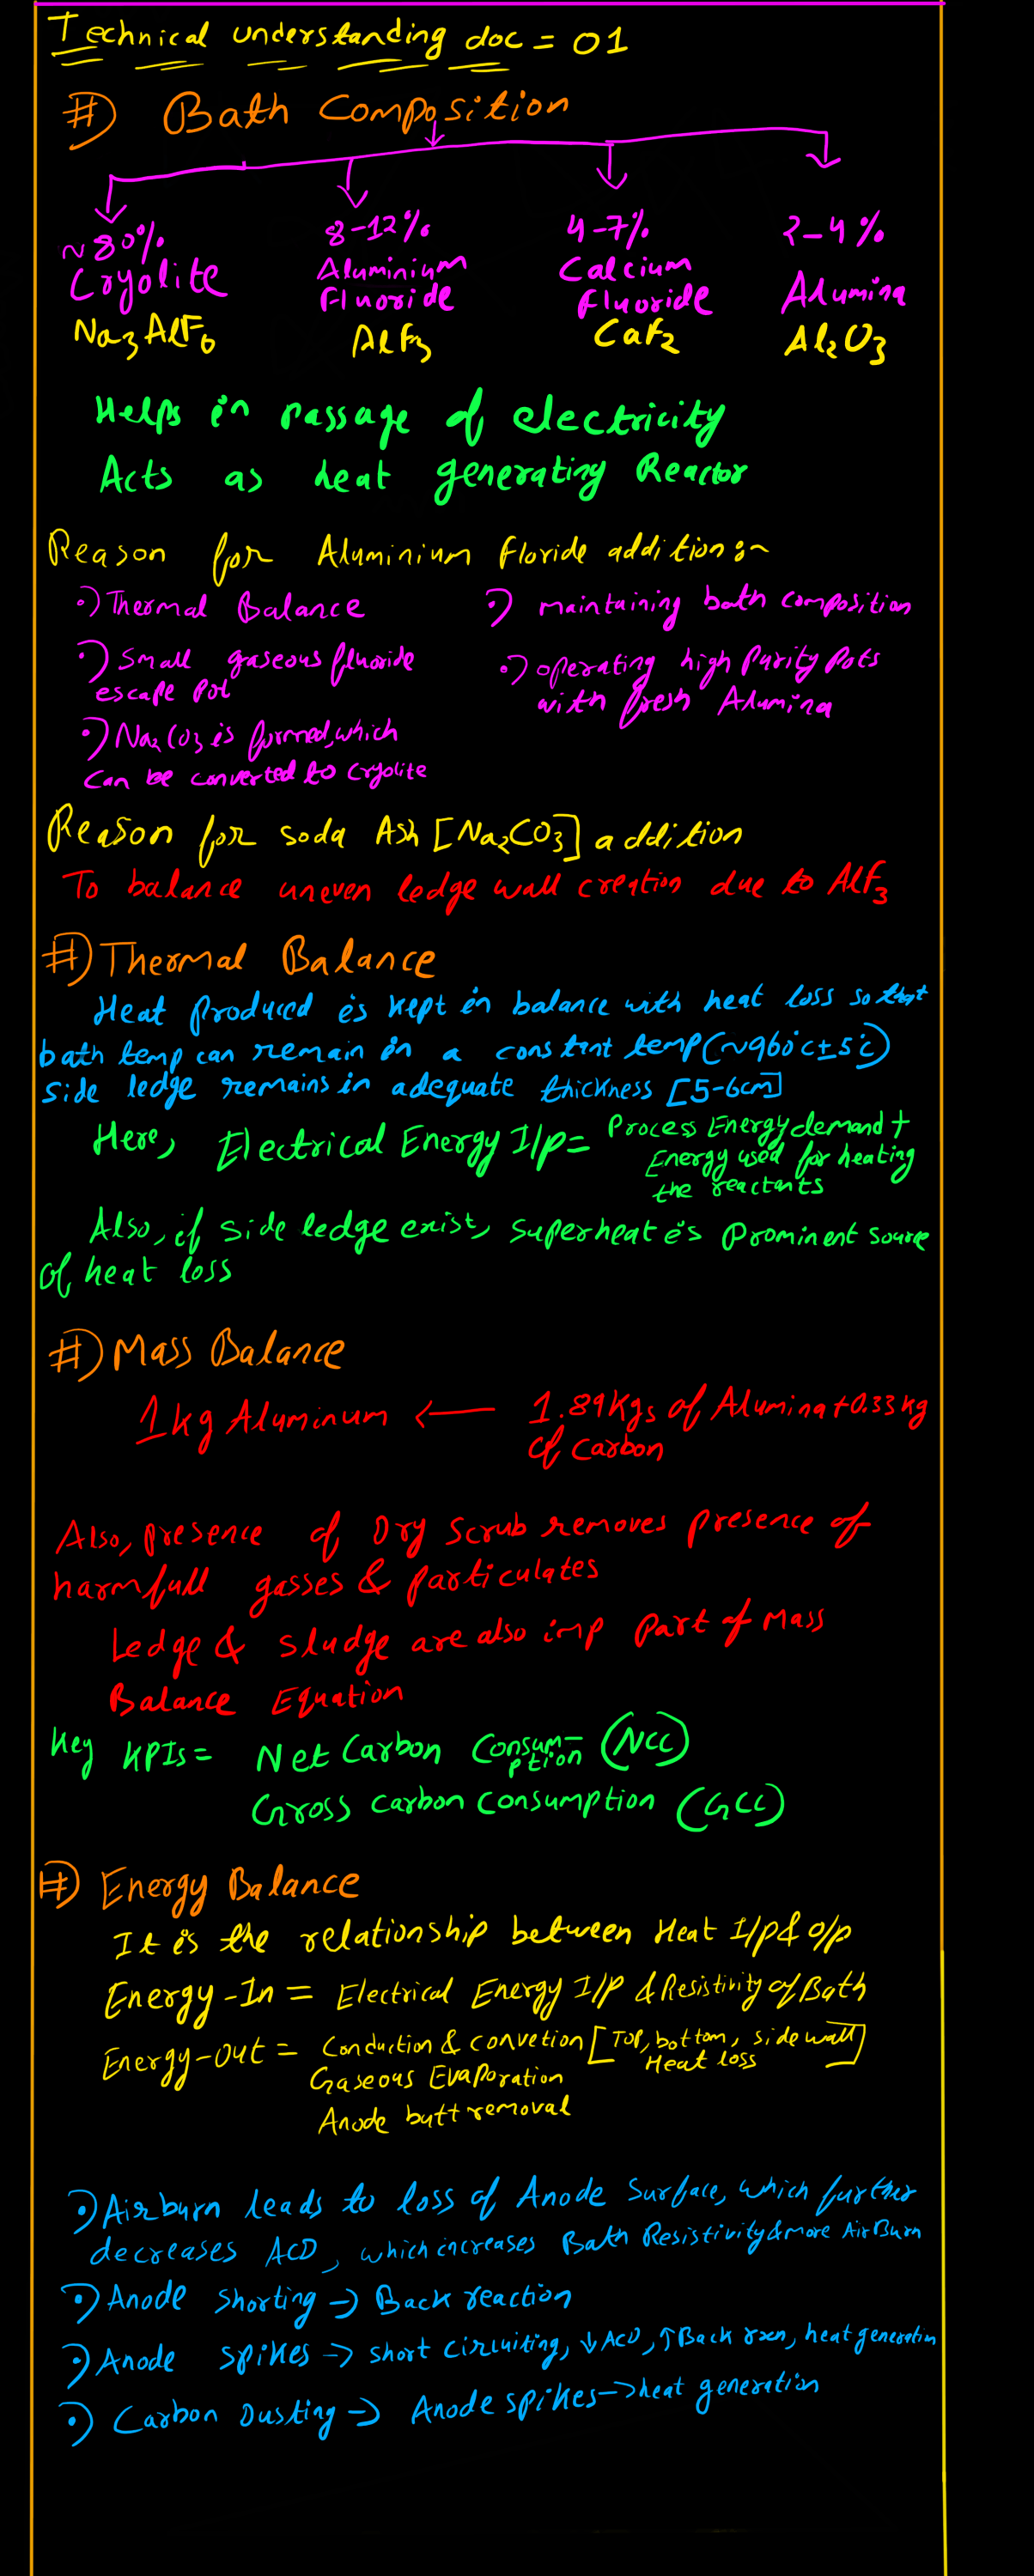 Technical understanding doc = 01
#) Bath Composition
~80% 8-12% 4-7% 2-4%
Cryolite Aluminium Fluoride Calcium Fluoride Alumina
Na3AlF6 AlF3 CaF2 Al2O3
Helps in Passage of electricity
Acts as heat generating Reactor
Reason for Aluminium Floride addition:~
•) Thermal Balance
•) Small gaseous fluoride
escape pot
•) Na2CO3 is formed, which
can be converted to cryolite
•) maintaining bath composition
•) operating high purity pots
with fresh Alumina
Reason for soda Ash [Na2CO3] addition
To balance uneven ledge wall creation due to AlF3
#) Thermal Balance
Heat Produced is kept in balance with heat loss so that
bath temp can remain in a constant temp (~960°C±5°C)
side ledge remains in adequate thickness [5-6cm]
Here, Electrical Energy I/p = Process Energy demand +
Energy used for heating
the reactants
Also, if side ledge exist, superheat is prominent source
of heat loss
#) Mass Balance
1kg Aluminum ← 1.89Kgs of Alumina + 0.33 kg
of carbon
Also, presence of Dry Scrub removes presence of
harmfull gasses & particulates
Ledge & sludge are also imp part of Mass
Balance Equation
Key KPIs = Net Carbon Consum-
ption (NCC)
Gross carbon consumption (GCC)
#) Energy Balance
It is the relationship between Heat I/p & o/p
Energy-In = Electrical Energy I/p & Resistivity of Bath
Energy-out = Conduction & convetion [Top, bottom, side wall]
Heat loss
Gaseous Evaporation
Anode butt removal
•) Airburn leads to loss of Anode Surface, which further
decreases ACD, which increases Bath Resistivity & more Air Burn
•) Anode shorting → Back reaction
•) Anode spikes → short circuiting, ↓ ACD, ↑ Back rxn, heat generation
•) Carbon Dusting → Anode spikes → heat generation